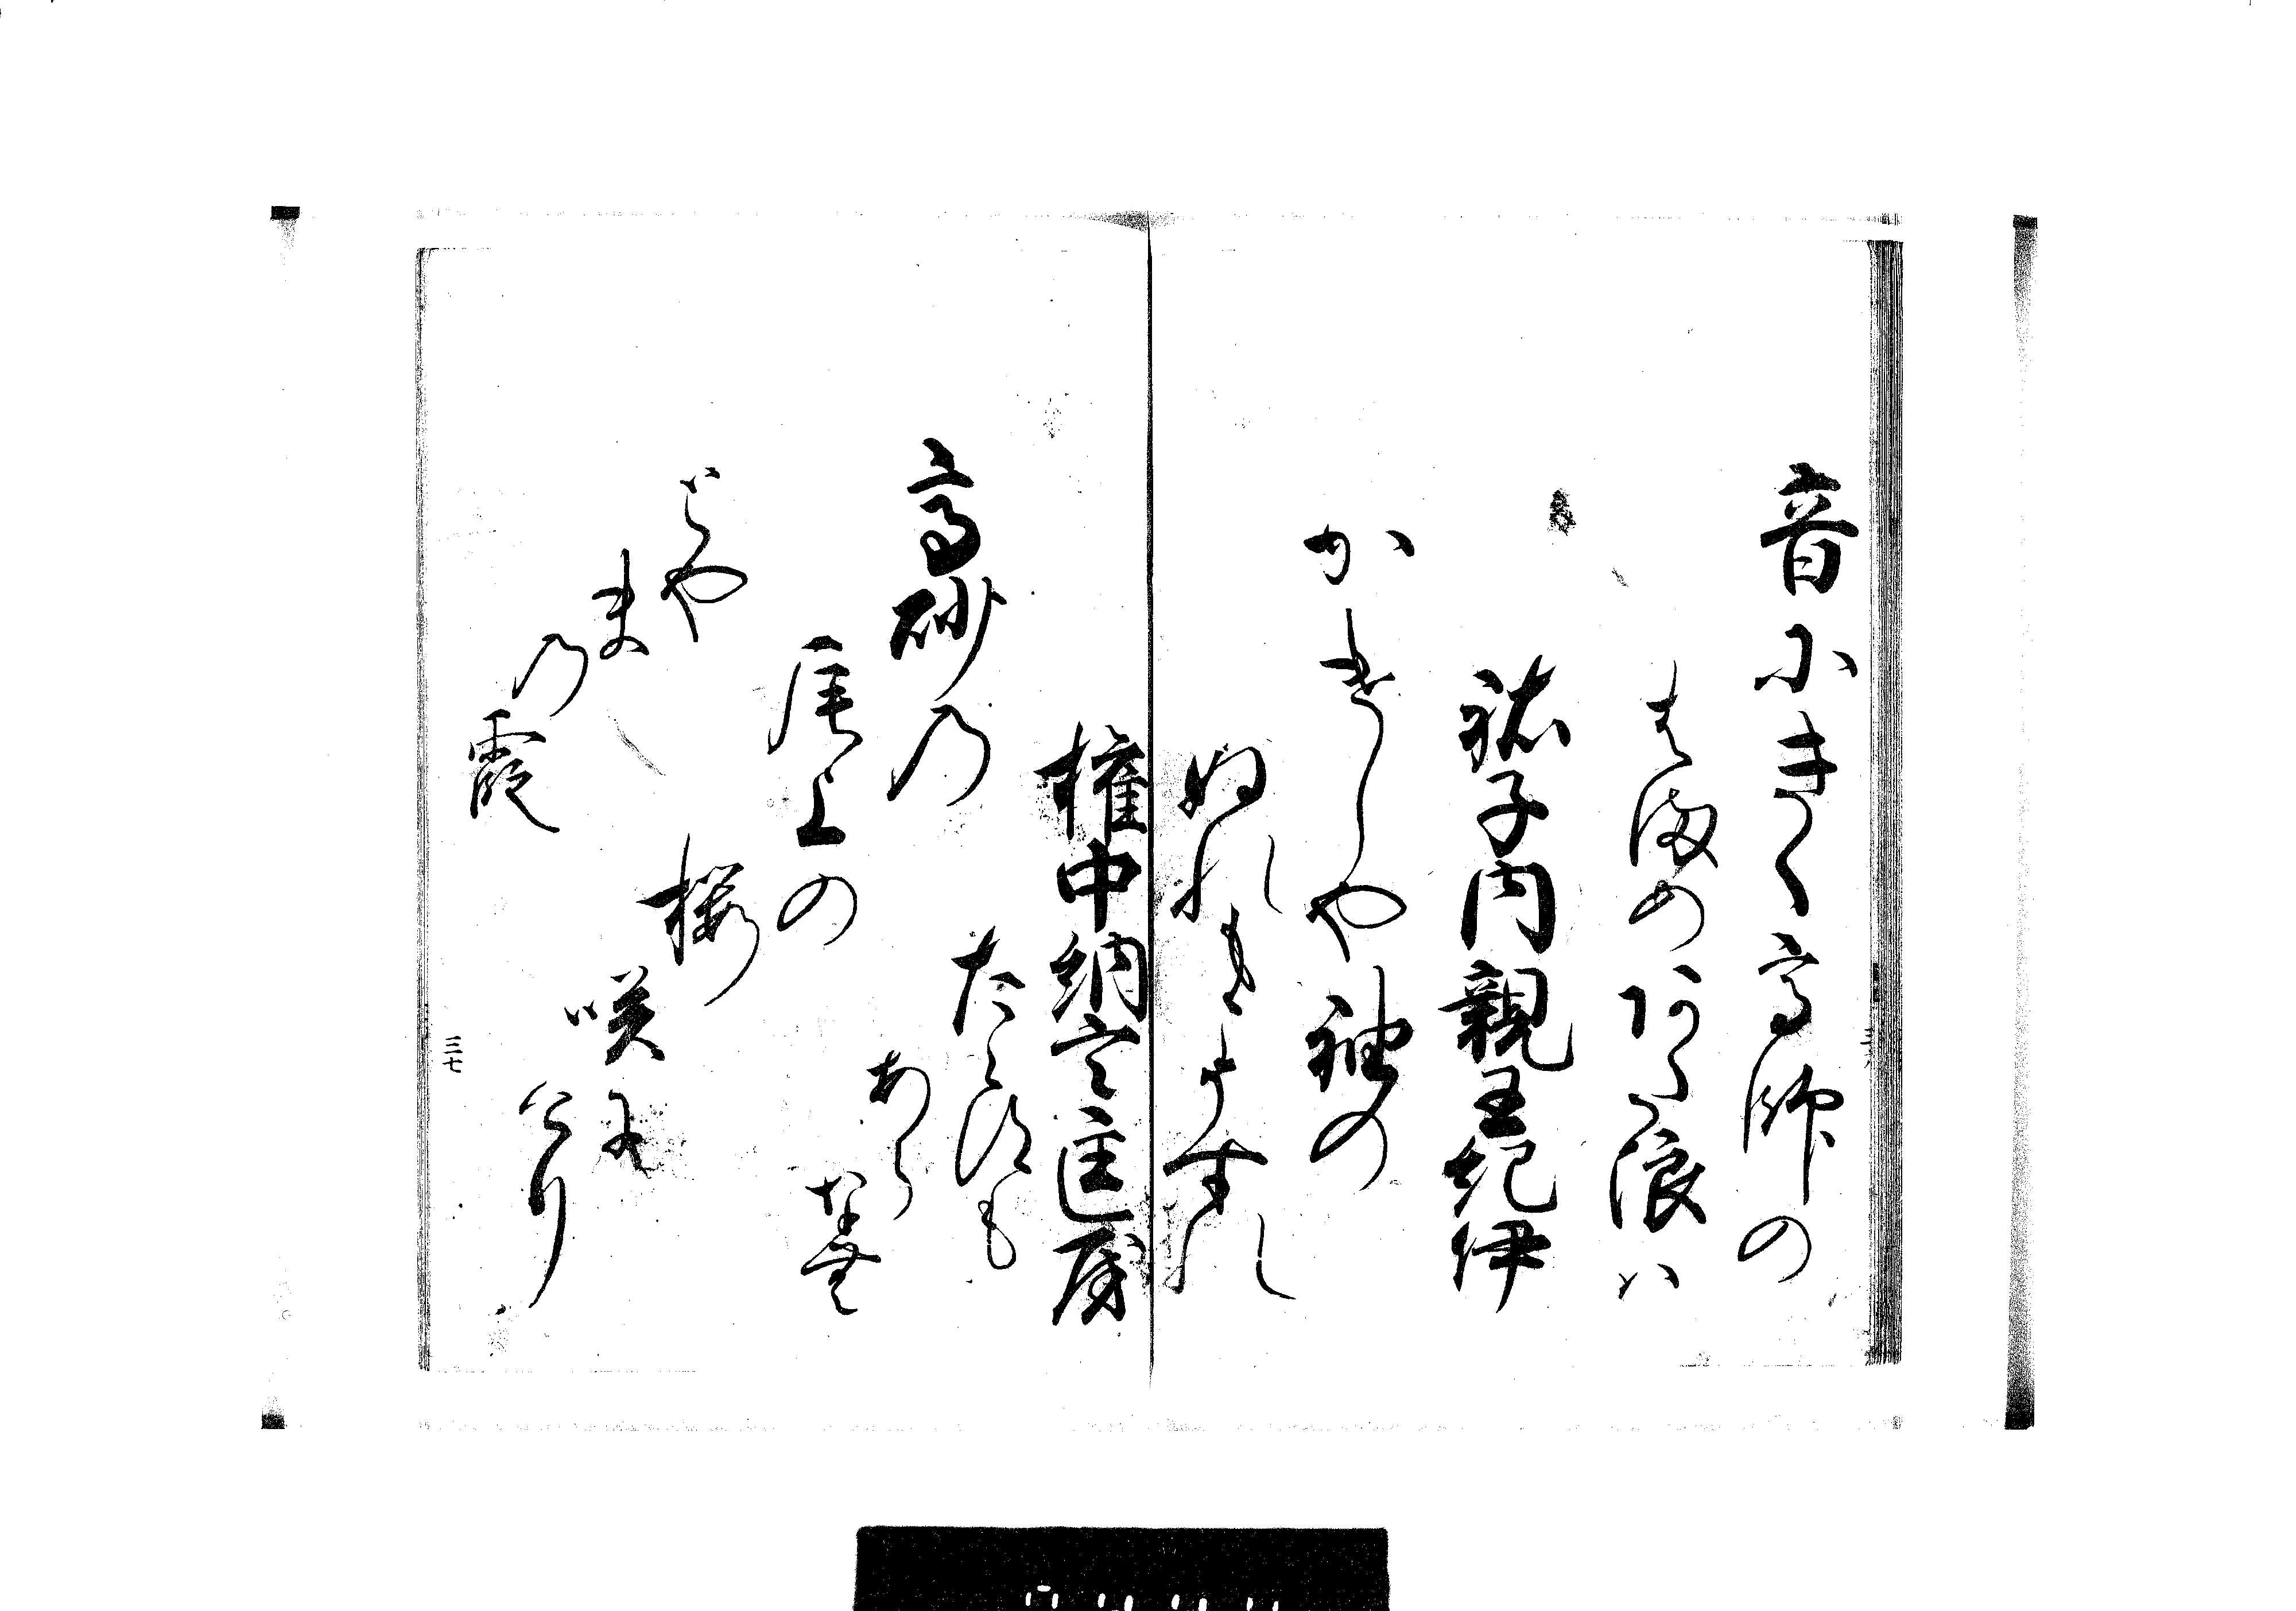 音にきく高師の
はまのあた浪ハ
祐子内親王紀伊
かけしや袖の
ぬれもこそすれ
権中納言匡房
高砂の
尾上の
桜
咲に
けり
とや
ま
の霞
たゝすも
あら
なむ
三七